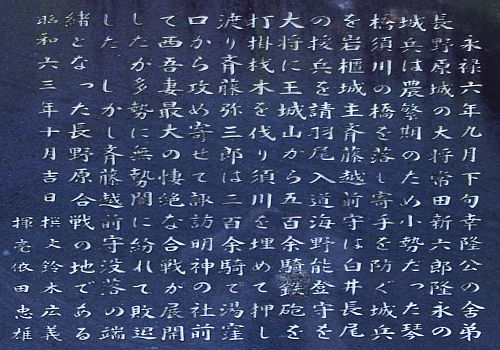 永禄六年九月下旬幸隆公の舎弟
長野原城の大将常田新六郎隆永の
城兵は農繁期のため小勢だった琴
橋須川の橋を落し寄手を防ぐ城兵
を岩櫃城主斉藤越前守は白井長尾
の援兵を請羽尾入道海野能金守を
大将に王城山から五百余騎鉄砲を
打掛伐木を伐り須川を埋めて押し
渡り斉藤弥三郎は二百余騎で湯窪
口から攻め寄せて諏訪明神の社前
て西吾妻最大の悽絶な合戦が展開
したか多勢に無勢闇に紛れて敗退
した しかし斉藤越前守没落の端
緒となった長野原合戦の地である
昭和六三年十月吉日 撰文 鈴木広義
揮毫 依田恵雄